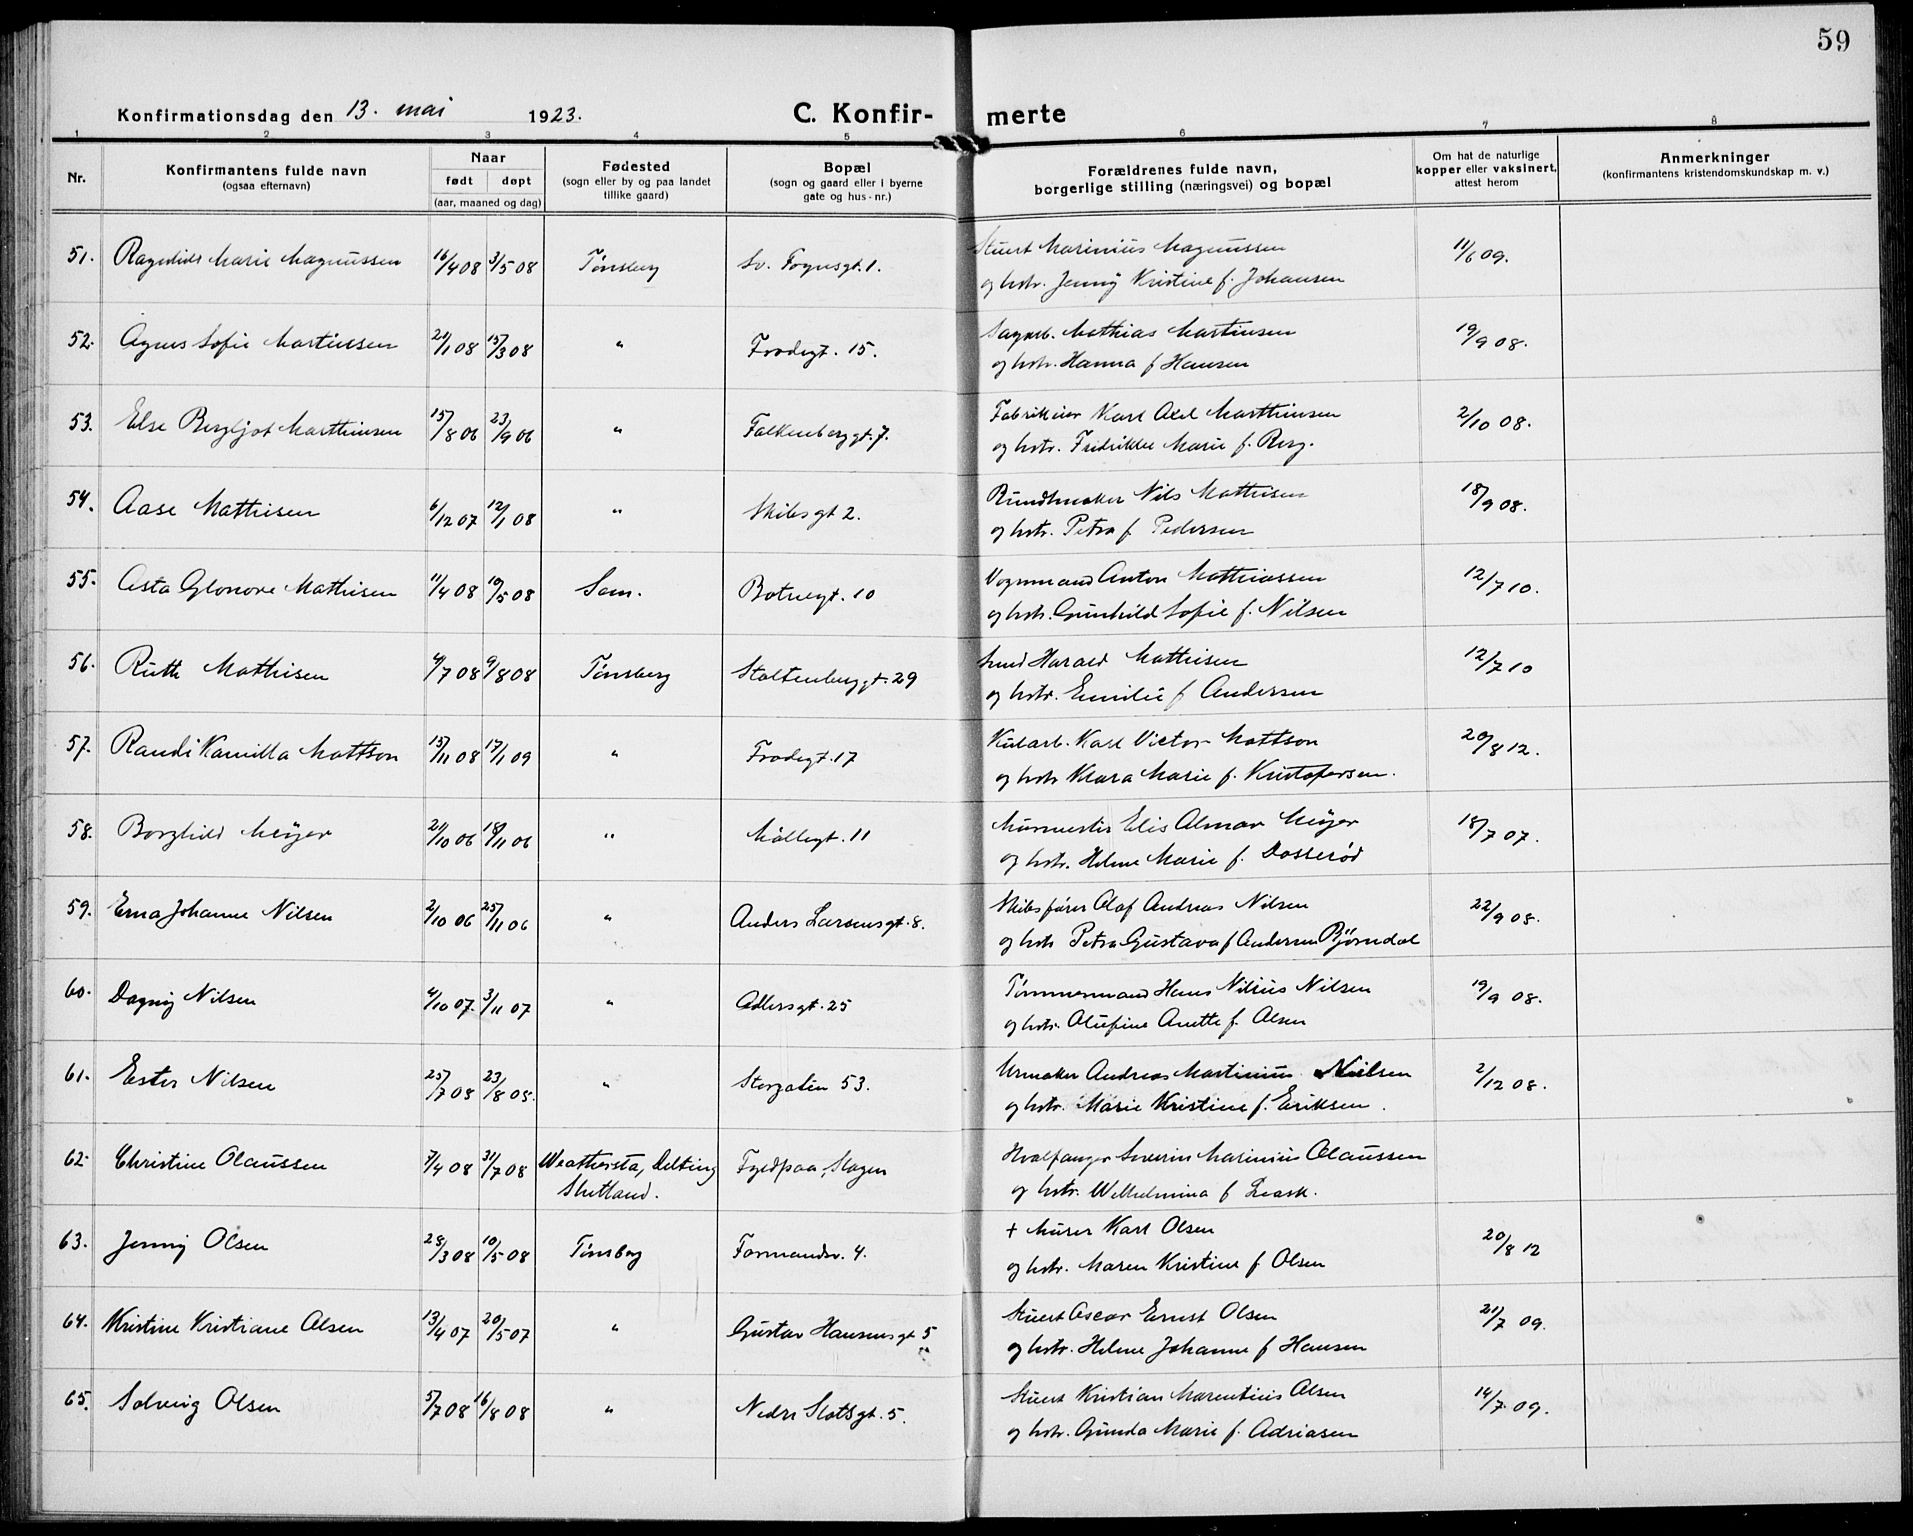 59
Konfirmationsdag den 13. mai 1923. C. Konfir- merte
1 2 3 4 5 6 7 8
Nr. Konfirmantens fulde navn (ogsaa efternavn) Naar født døpt (aar, maaned og dag) Fødested (sogn eller by og paa landet tillike gaard) Bopæl (sogn og gaard eller i byerne gate og hus-nr.) Forældrenes fulde navn, borgerlige stilling (næringsvei) og bopæl Om hat de naturlige kopper eller vaksinert, attest herom Anmerkninger (konfirmantens kristendomskundskap m. v.)
51. Ragnhild Marie Magnussen 16/4 08 3/5 08 Tønsberg Sv. Foynsgt. 1. Stuert Marinius Magnussen 11/6 09.
og hstr. Jenny Kristine f. Johansen
52. Agnes Sofie Martinsen 21/1 08 15/3 08 " Frodegt. 15. Sagarb. Mathias Martinsen 19/9 08.
og hstr. Hanna f Hansen
53. Else Bergljot Marthinsen 15/8 06 23/9 06 " Falkenberggt. 7. Fabrikeier Karl Axel Marthinsen 2/10 08.
og hstr. Fredrikke Marie f. Berg.
54. Aase Mathisen 6/12 07 12/1 08 " Skibsgt 2. Bundtmaker Nils Mathisen 18/9 08.
og hstr. Petra f. Pedersen
55. Asta Glonore Mathisen 11/4 08 10/5 08 Sem. Botnegt. 10 Vognmand Anton Mathiassen 12/7 10.
og hstr. Gunhild Sofie f. Nilsen
56. Ruth Mathisen 4/7 08 9/8 08 Tønsberg Stoltenberggt. 29 Smed Harald Mathisen 12/7 10
og hstr. Emilie f Andersen
57. Randi Kamilla Mattson 15/11 08 17/1 09 " Frodegt. 17 Kularb. Karl Victor Mattson 20/8 12.
og hstr Klara Marie f. Kristofersen.
58. Borghild Meyer 21/10 06 18/11 06 " Møllegt. 11 Murmester Elis Almar Meyer 18/7 07.
og hstr. Helene Marie f. Dosserød
59. Erna Johanne Nilsen 2/10 06 25/11 06 " Anders Larsensgt. 8. Skibsfører Olaf Andreas Nilsen 22/9 08.
og hstr Petra Gustava f Andersen Bjørndal
60. Dagny Nilsen 4/10 07. 3/11 07 " Adlersgt. 25 Tømmermand Hans Nilius Nilsen 19/9 08.
og hstr. Olufine Anette f. Olsen
61. Ester Nilsen 25/7 08 23/8 08. " Storgaten 53. Urmaker Andreas Martinius Nielsen 2/12 08.
og hstr. Marie Kristine f. Eriksen.
62. Christine Olaussen 7/4 08 31/7 08 Weathersta, Delting Fyldpaa, Slagen Hvalfanger Severin Marinius Olaussen
Shetland. og hstr. Wilhelmina f Leask.
63. Jenny Olsen 28/3 08 10/5 08 Tønsberg Formandsv. 4. + Murer Karl Olsen 20/8 12
og hstr. Maren Kristine f Olsen
64. Kristine Kristiane Olsen 13/4 07 20/5 07 " Gustav Hansensgt 5 Stuert Oscar Ernst Olsen 21/7 09.
og hstr. Helene Johanne f Hansen
65. Solveig Olsen 5/7 08 16/8 08 " Nedre Slotsgt. 5. Stuert Kristian Marentius Olsen 14/7 09.
og hstr. Gunda Marie f. Adriasen